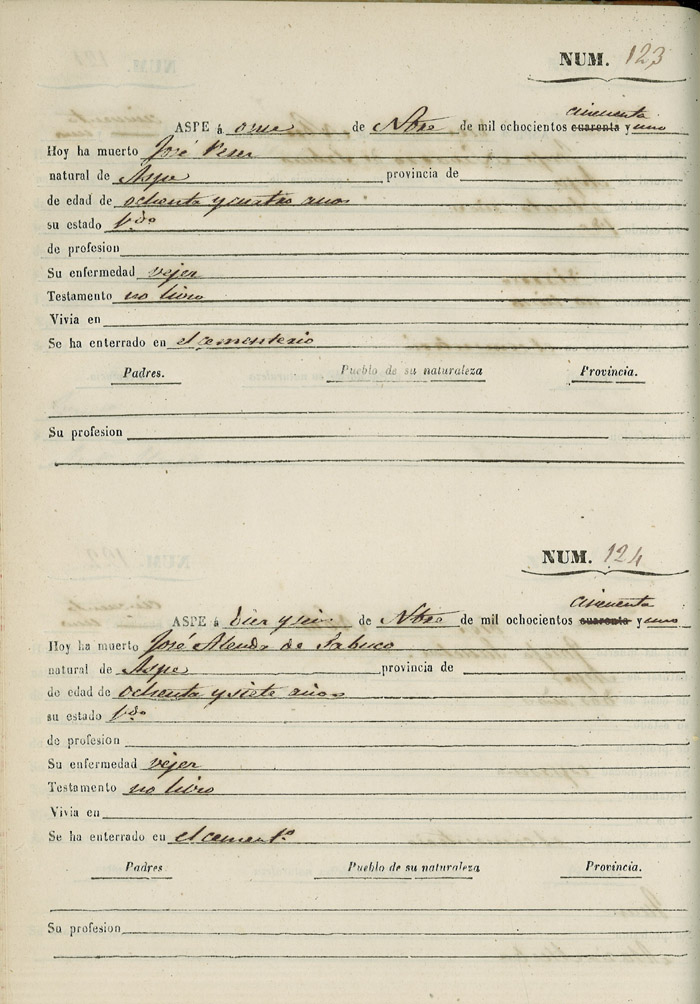 NUM. 123
cincuenta
ASPE á once de Nbre de mil ochocientos cuarenta y uno
Hoy ha muerto José
natural de Aspe provincia de
de edad de ochenta y cuatro años
su estado Vdo
de profesion
Su enfermedad vejez
Testamento no hizo
Vivia en
Se ha enterrado en el cementerio
Padres. Pueblo de su naturaleza Provincia.
Su profesion
NUM. 124
cincuenta
ASPE á Diez y seis de Nbre de mil ochocientos cuarenta y uno
Hoy ha muerto José Alenda de Pabuco
natural de Aspe provincia de
de edad de ochenta y siete años
su estado Vdo
de profesion
Su enfermedad vejez
Testamento no hizo
Vivia en
Se ha enterrado en el cementº
Padres Pueblo de su naturaleza Provincia.
Su profesion